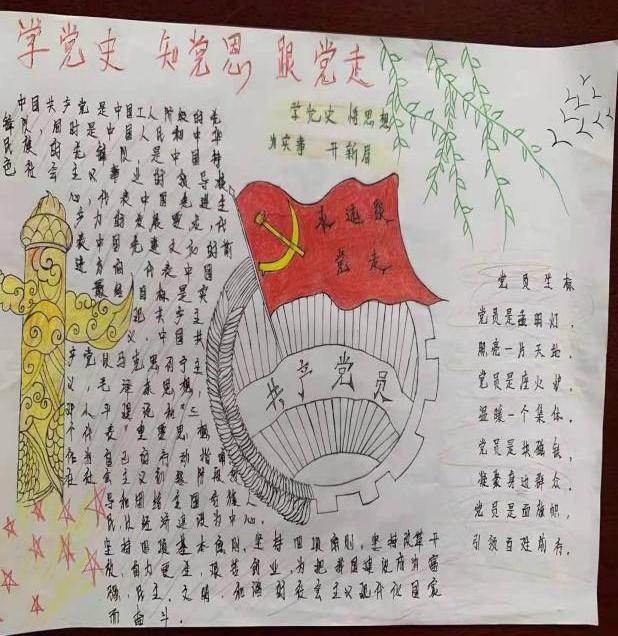 学党史 知党恩 跟党走
学党史 悟思想
办实事 开新局
中国共产党是中国工人阶级的先
锋队，同时是中国人民和中华
民族的先锋队，是中国特
色社会主义事业的领导核
心，代表中国先进生
产力的发展要求，代
表中国先进文化的前
进方向，代表中国
最终目标是实
现共产主
义，中国共
产党以马克思列宁主
义，毛泽东思想，
邓小平理论和"三
个代表"重要思想
作为自己的行动指南
在社会主义初级阶段
导和团结全国各族人
民以经济建设为中心，
坚持四项基本原则，坚持四项原则，坚持改革开
放，自力更生，艰苦创业，为把我国建设成为富
强，民主，文明，和谐的社会主义现代化国家
而奋斗．
永远跟
党走
共产党员
党员坐标
党员是盏明灯，
照亮一片天地．
党员是座火炉，
温暖一个集体．
党员是块磁铁，
凝聚身边群众．
党员是面旗帜，
引领百姓前行．